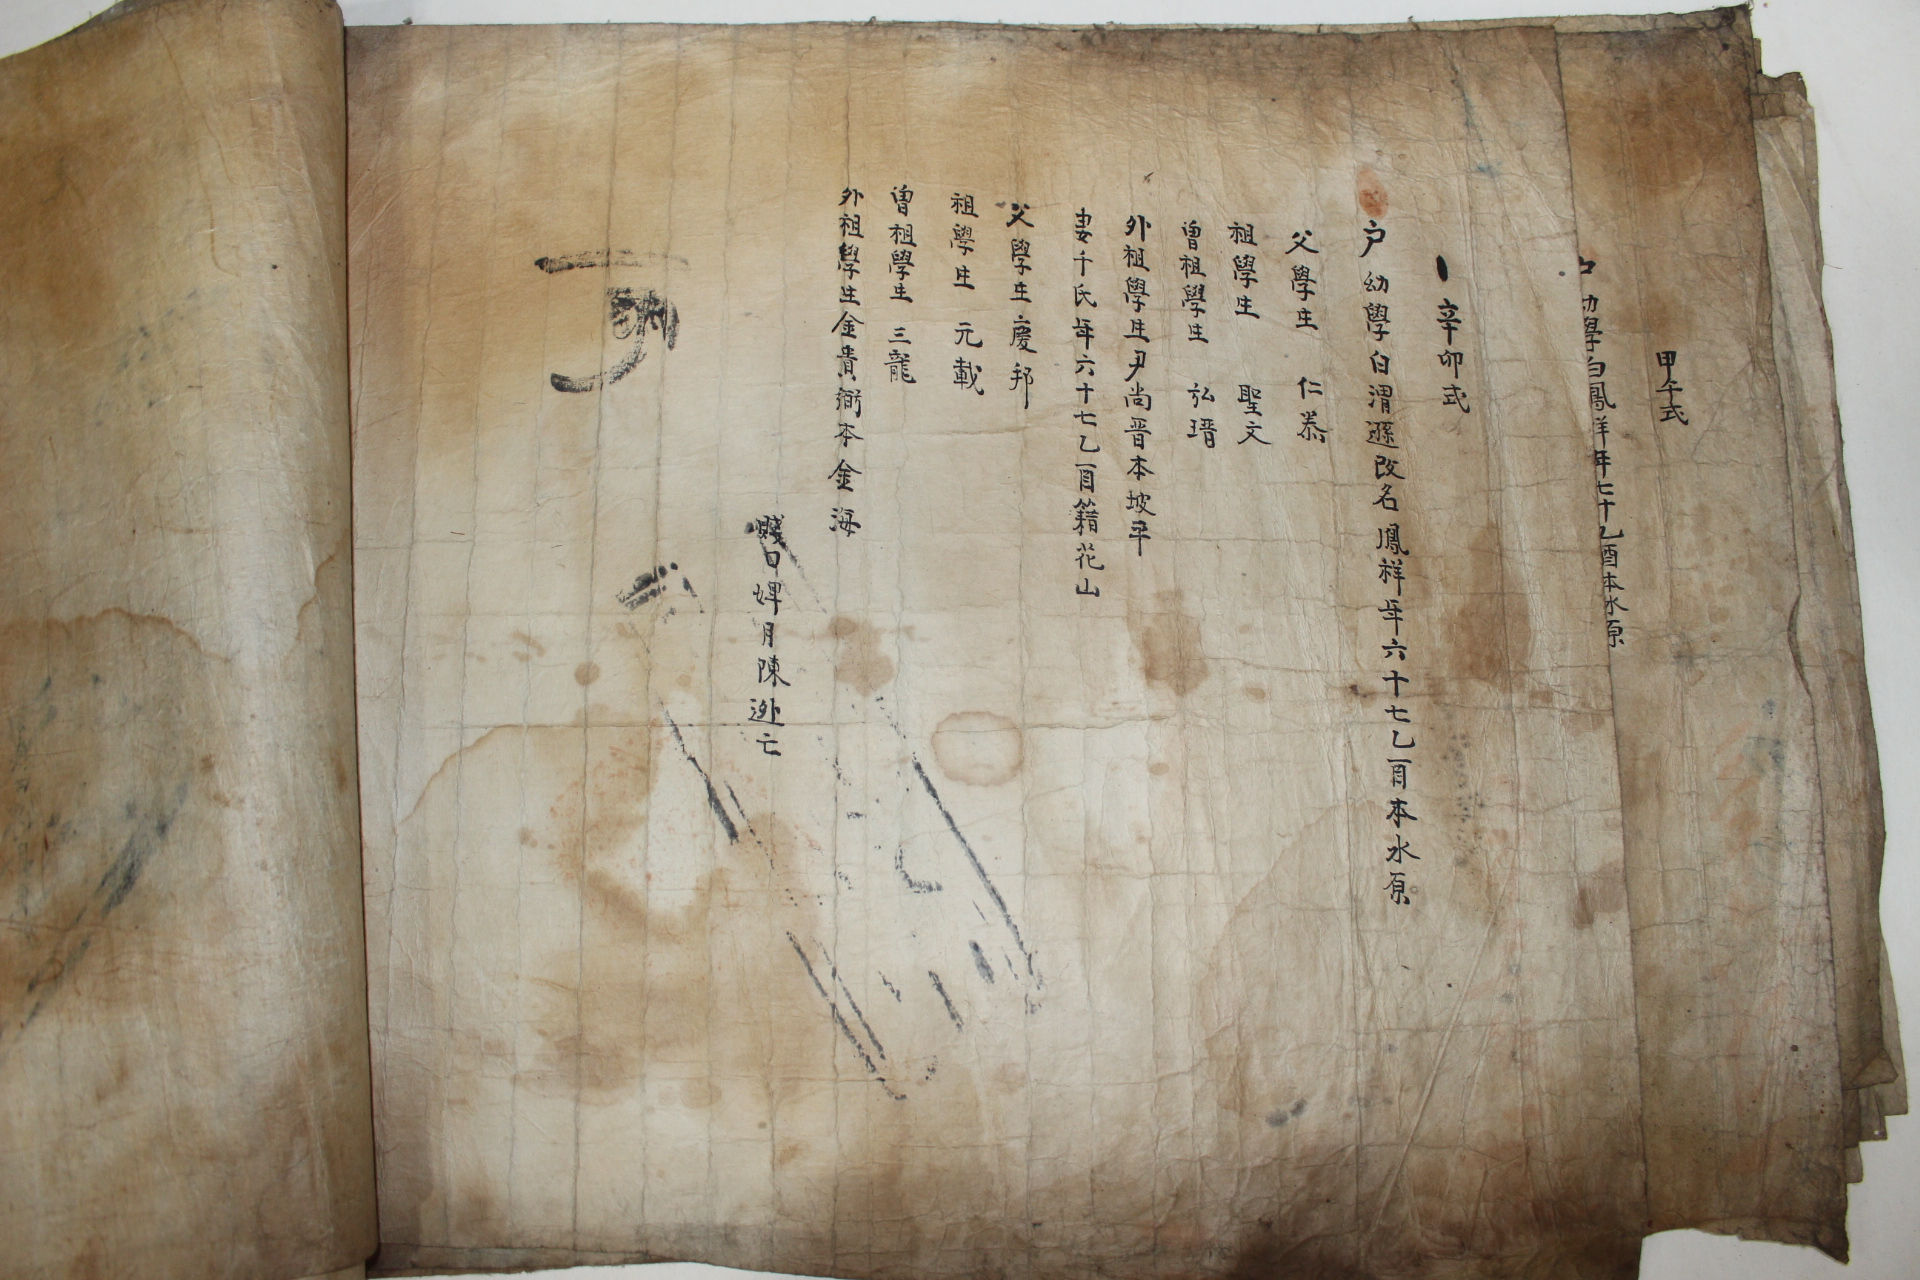 甲午式
幼學白鳳祥年七十乙酉本水原
辛卯式
戶幼學白渭遜改名鳳祥年六十七乙酉本水原
父學生 仁恭
祖學生 聖文
曾祖學生 弘璿
外祖學生尹尚晋本坡平
妻千氏年六十七乙酉籍花山
父學生慶邦
祖學生 元載
曾祖學生 三龍
外祖學生金貴 本金海
賤口婢月陳逃亡